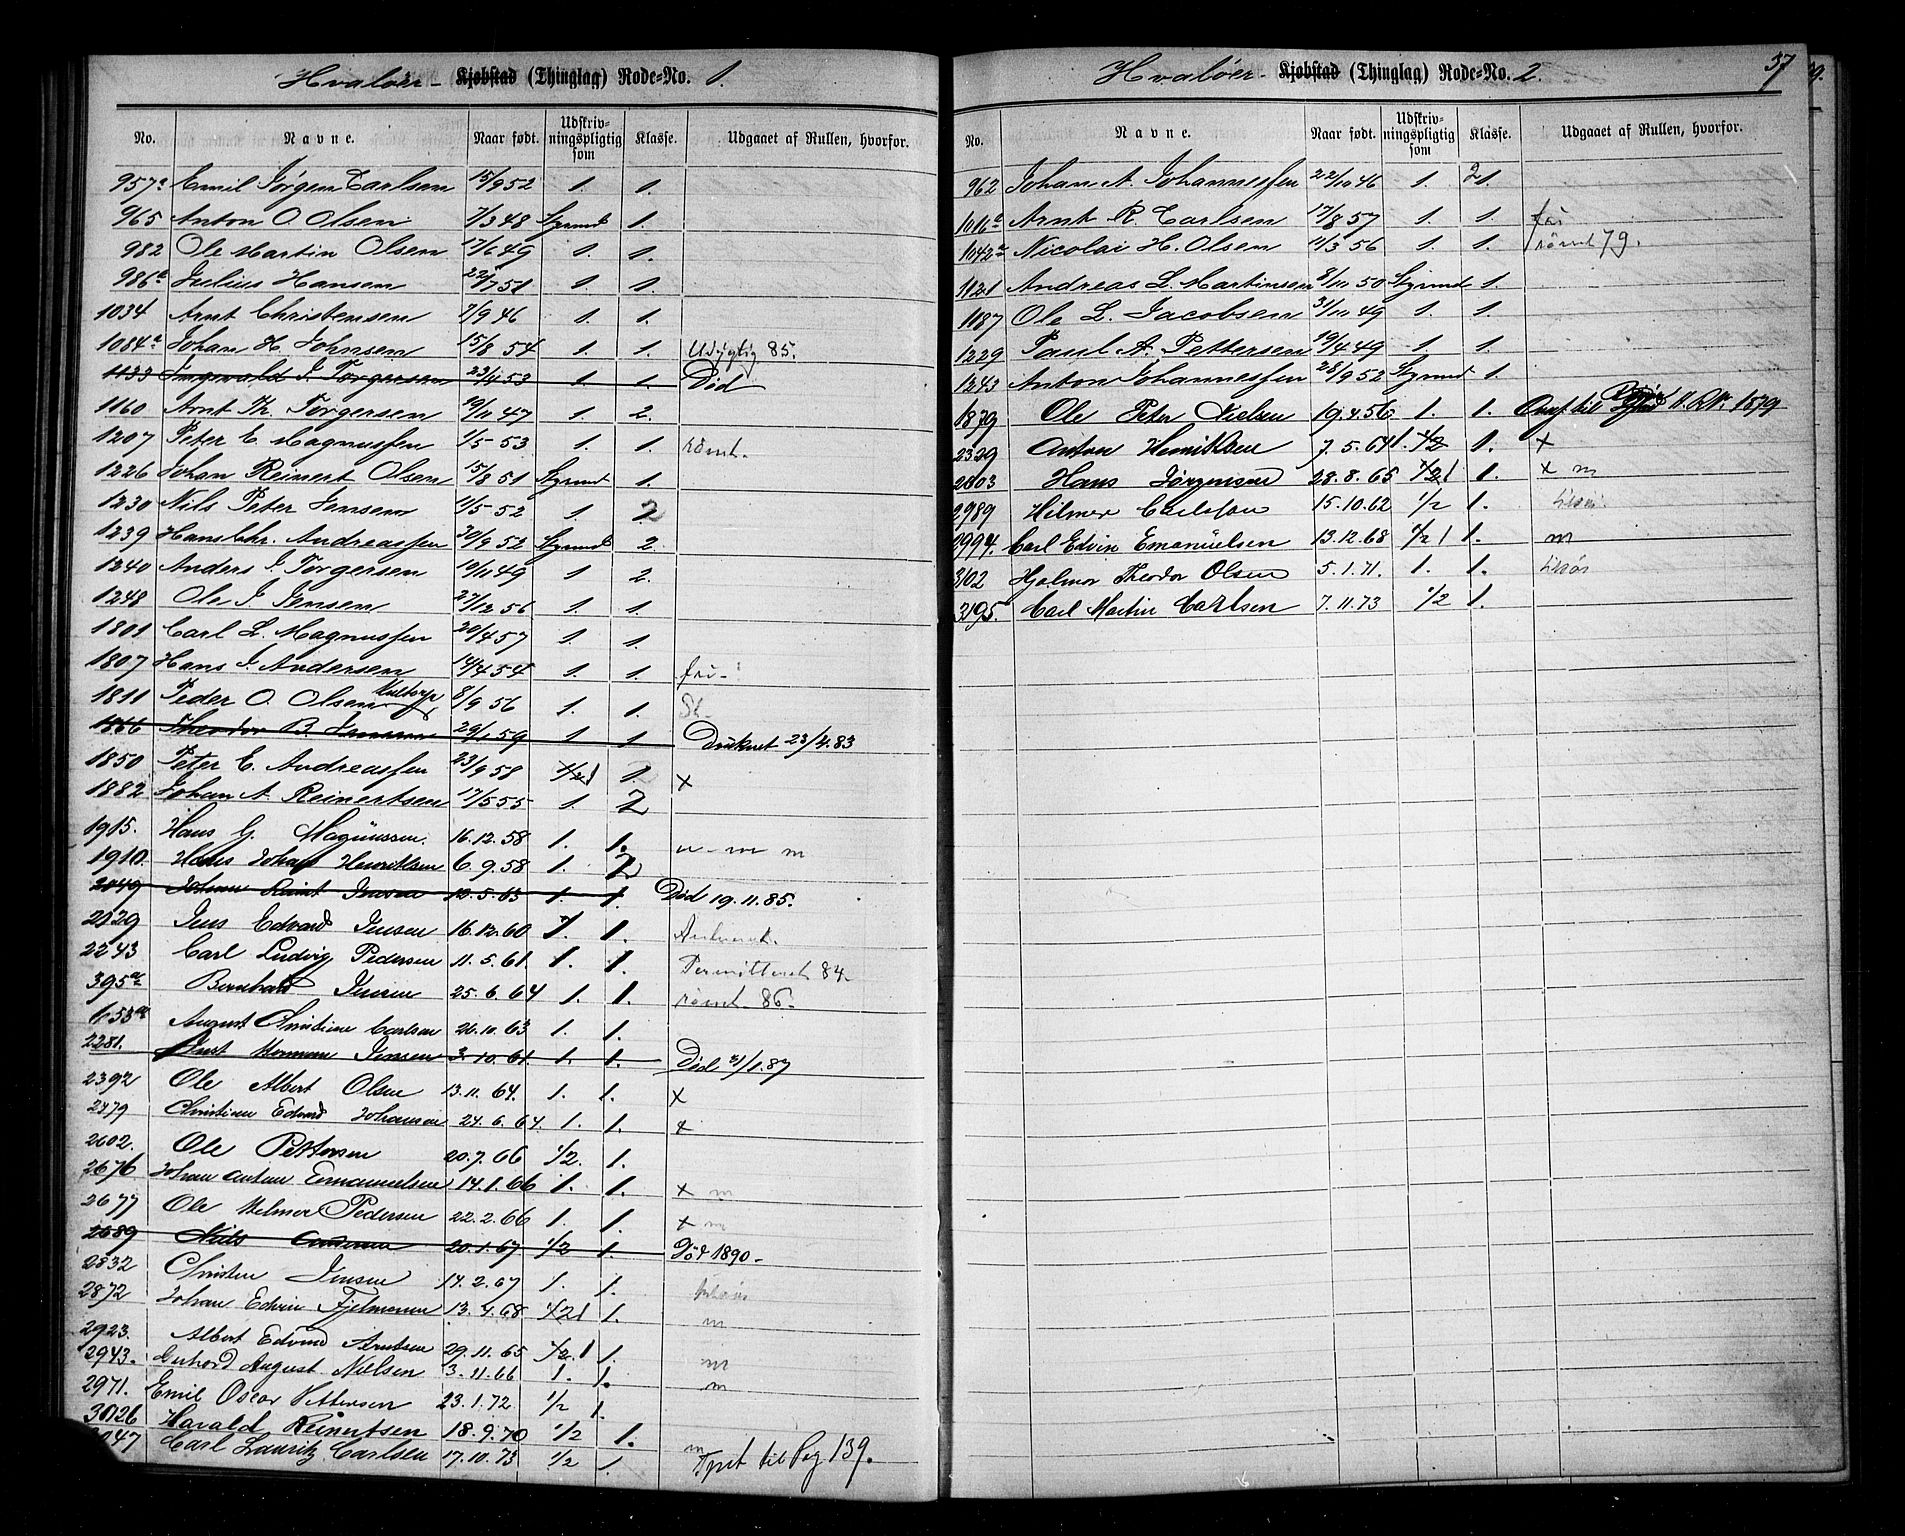 Hvaløer - Kjøbstad (Thinglag) Rode-No. 1.
No. Navne. Naar født. Udskrivningspligtig som Klasse. Udgaaet af Rullen, hvorfor.
957a Emil Jørgen Carlsen 15/9 52 1. 1.
965 Anton O. Olsen 7/3 48 Styrmd 1.
982 Ole Martin Olsen 17/6 49 1. 1.
986a Julius Hansen 22/7 51 1. 1.
1034 Arnt Christensen 7/9 46 1. 1.
1084a Johan H. Johnsen 15/8 54 1. 1. Udygtig 85.
1133 Ingvald J. Torgersen 23/4 53 1. 1. Död
1160 Arnt Th. Torgersen 19/11 47 1. 2.
1207 Peter E. Magnussen 1/5-53 1. 1. römt.
1226 Johan Reinert Olsen 15/8 51 Styrmd 1.
1230 Nils Peter Jensen 11/5-52 1. 2
1239 Hans Chr. Andreassen 30/9 52 Styrmd 2.
1240 Anders J. Torgersen 19/11 49 1 2.
1248 Ole J. Jensen 27/12 56 1. 1.
1801 Carl L. Magnussen 20/4 57 1. 1.
1807 Hans J. Andersen 14/4 54 1. 1.
1811 Peder O. Olsen 8/9 56 1. 1.
1866 Theodor B. Jensen 29/1 59 1. 1 Druknet 23/4.83
1850 Peter E. Andreassen 23/9 58 1/2 1 1. x
1882 Johan A. Reinertsen 17/5 55 1. 2
1915. Hans G. Magnussen. 16.12.58 1. 1.
1910. Hans Johan Henriksen 6.9.58 1. 2
2049 Johan Reint Jensen 12.5.63 1. 1. Död 19.11.85.
2029 Jens Edvard Jensen 16.12.60 1. 1.
2243 Carl Ludvig Pedersen 11.5.61. 1. 1. Permitteret 84.
395a Bernhard Jensen 25.6.64 1. 1. römt. 86.
1053a August Christian Carlsen 26.10.63 1. 1.
2281. Just Herman Jensen 3.10.61 1. 1. Död 31/1.87
2392 Ole Albert Olsen 13.11.64. 1. 1. x
2479 Christian Edvard Johansen 24.6.64. 1. 1. x
2602. Ole Pettersen 20.7.66 1/2. 1.
2676 Johan Anton Emanuelsen 14.1.66 1. 1. x m
2677 Ole Helmer Pedersen 22.2.66 1. 1. x m
2689 Nils Andersen 20.1.67 1/2 1. Död 1890.
2832 Christen Jensen 14.2.67 1. 1.
2872 Johan Edvin Hjelmersen 13.4.68 1/2 1 1. m
2923. Albert Edvind Arntsen 29.11.65 1/2.1 1. m
2943. Gerhard August Nielsen 3.11.66 1. 1. m
2971. Emil Oscar Pettersen 23.1.72 1/2 1.
3026 Harald Reinertsen 18.9.70 1/2 1. m
3047 Carl Lauritz Carlsen 17.10.73 1/2 1. Tprt til Pag 139.
37
Hvaløer - Kjøbstad (Thinglag) Rode-No. 2.
No. Navne. Naar født. Udskrivningspligtig som Klasse. Udgaaet af Rullen, hvorfor.
962 Johan A. Johannessen 22/10 46 1. 21.
1016a Arnt R. Carlsen 17/8 57 1. 1.
1042a Nicolai H. Olsen 11/3 56 1. 1. römt 79.
1121 Andreas L. Martinsen 8/11 50 Styrmd 1.
1187 Ole L. Jacobsen 31/11 49 1. 1.
1229 Paul A. Pettersen 19/4 49 1. 1.
1243 Anton Johannessen 28/9 52 Styrmd 1.
1879 Ole Peter Nielsen 19.4.56 1. 1. Overf. til II. R.Nr. 1579
2329 Anton Henriksen 7.5.64 1. 1/2 1. x
2803 Hans Jørgensen 28.8.65 1/2 1 1. x m
2989 Hilmer Carlsson 15.10.62 1/2 1.
2994. Carl Edvin Emanuelsen 13.12.68 1/2 1 1. m
3102 Hjalmar Theodor Olsen 5.1.71. 1. 1.
3195. Carl Martin Carlsen 7.11.73 1/2 1.